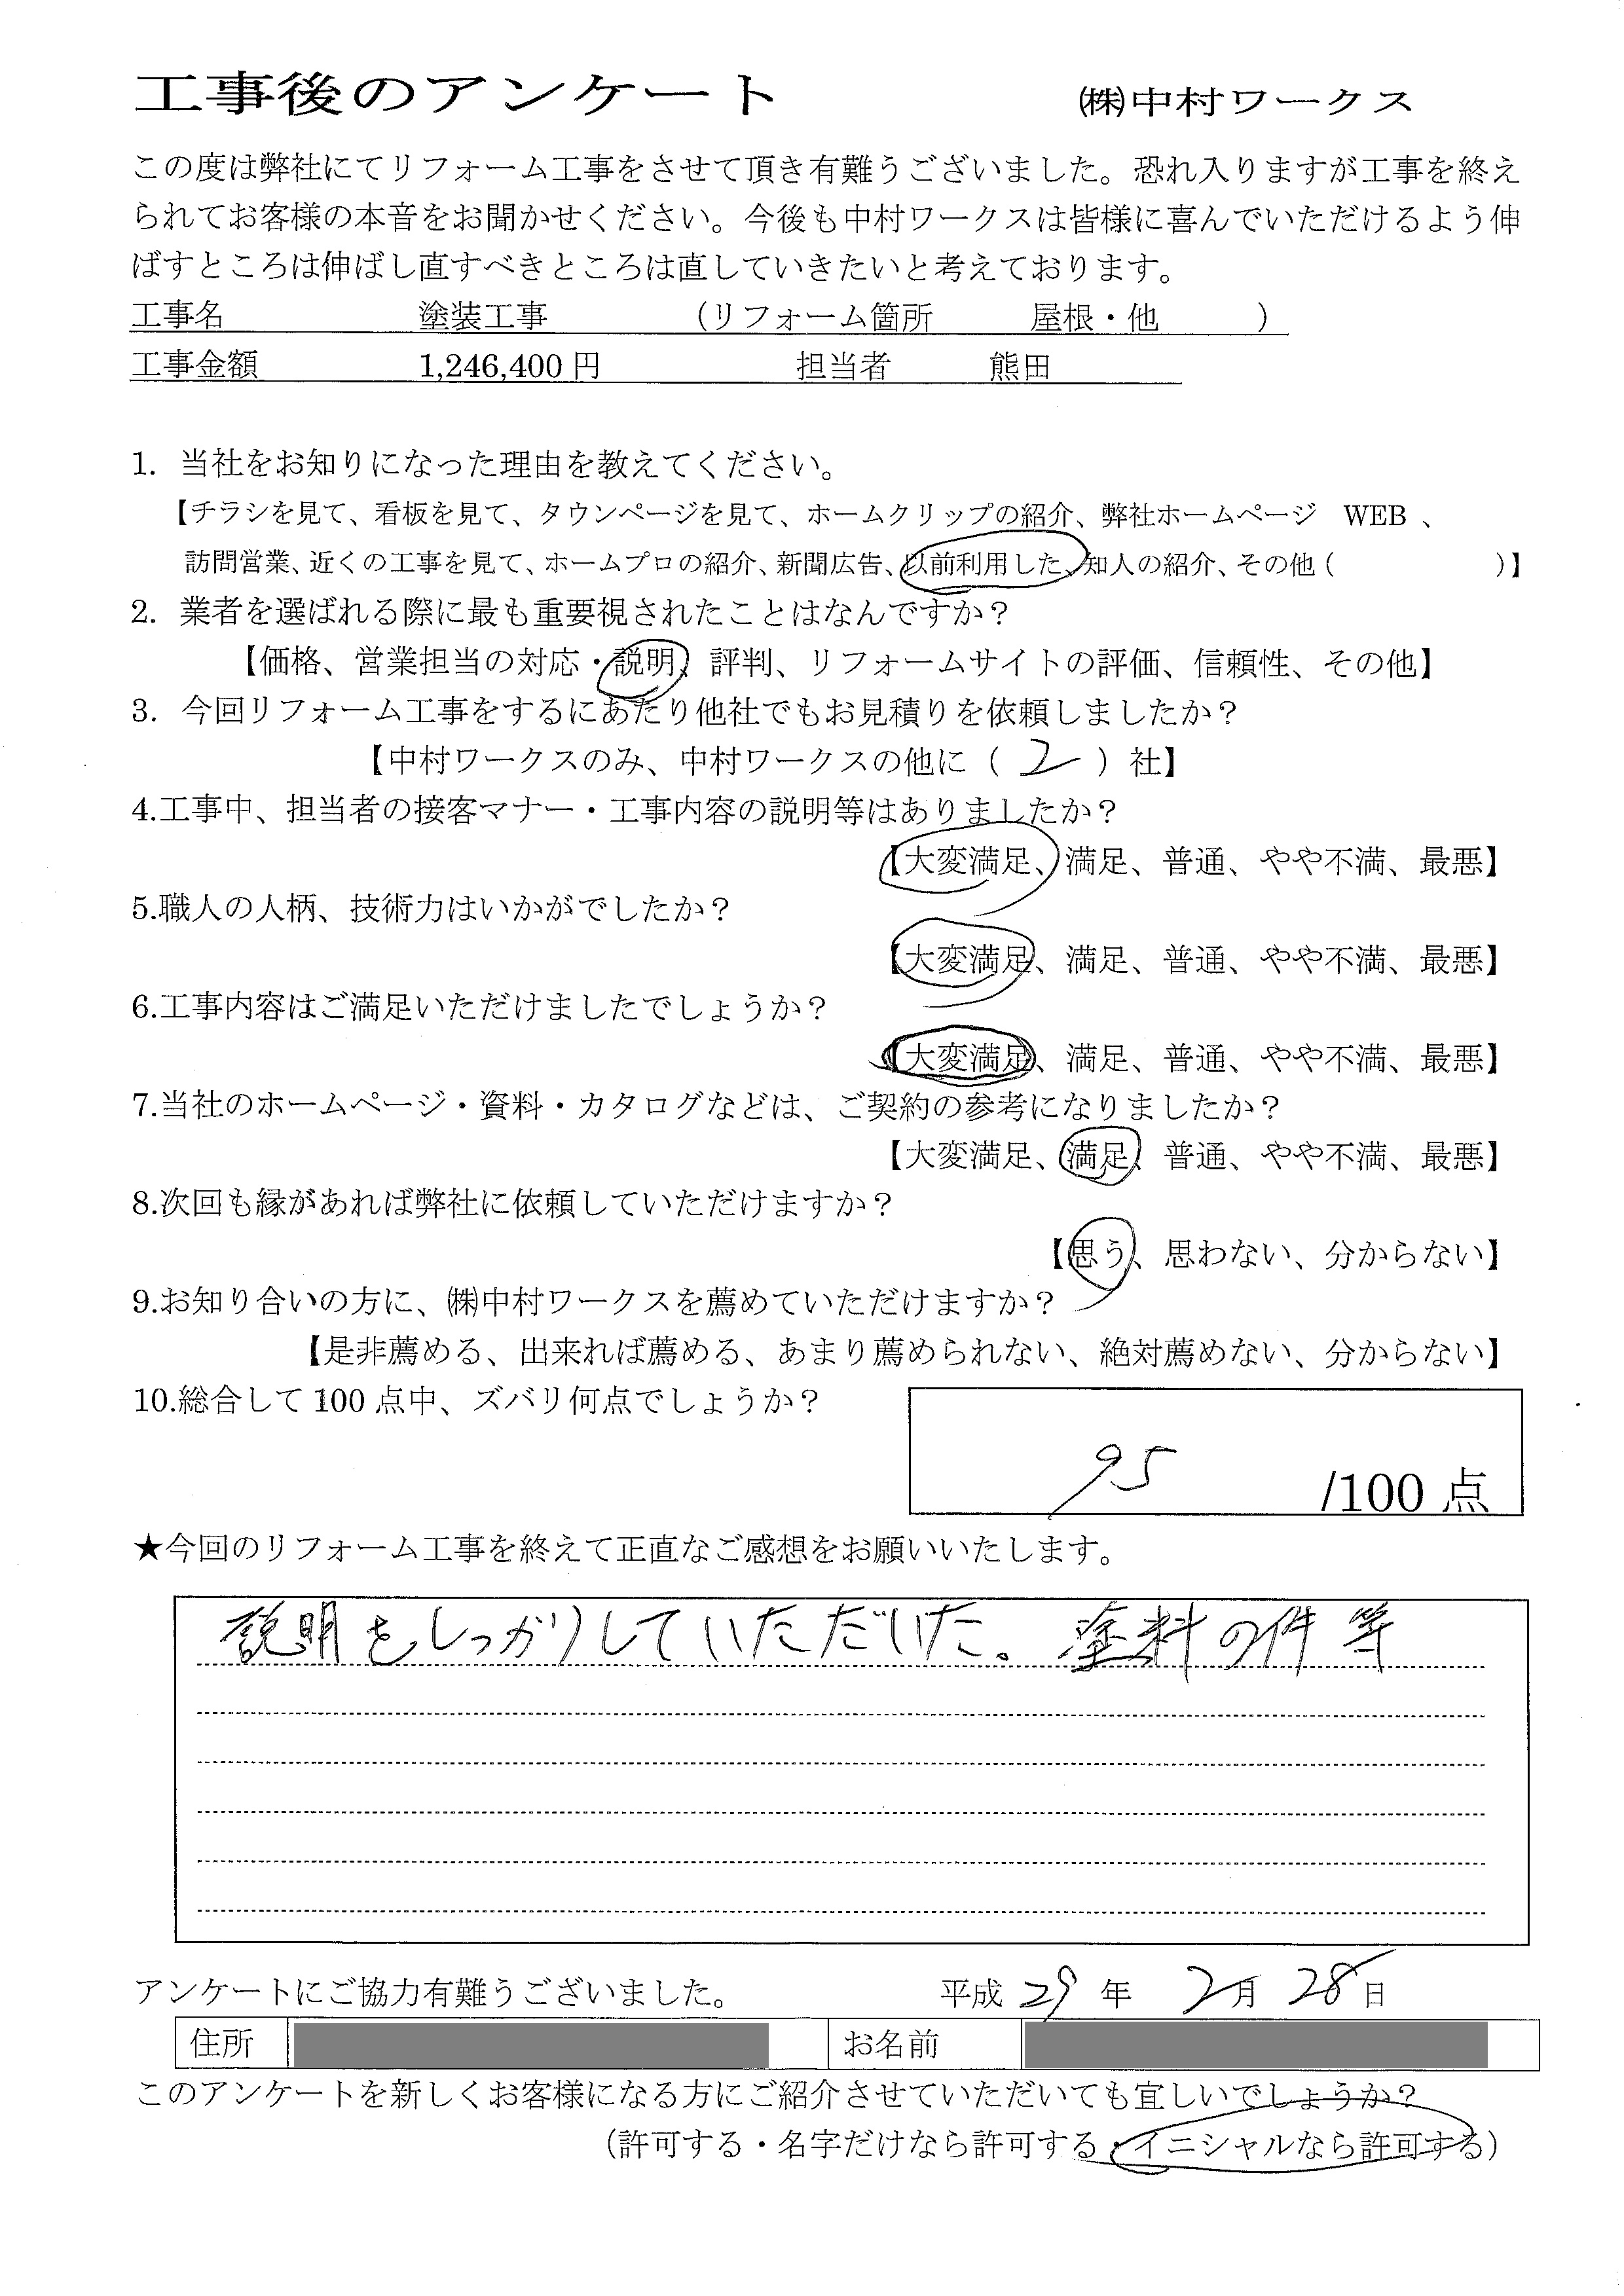 工事後のアンケート ㈱中村ワークス
この度は弊社にてリフォーム工事をさせて頂き有難うございました。恐れ入りますが工事を終え
られてお客様の本音をお聞かせください。今後も中村ワークスは皆様に喜んでいただけるよう伸
ばすところは伸ばし直すべきところは直していきたいと考えております。
工事名 塗装工事 (リフォーム箇所 屋根・他 )
工事金額 1,246,400 円 担当者 熊田
1. 当社をお知りになった理由を教えてください。
【チラシを見て、看板を見て、タウンページを見て、ホームクリップの紹介、弊社ホームページ WEB 、
訪問営業、近くの工事を見て、ホームプロの紹介、新聞広告、以前利用した、知人の紹介、その他 ( )】
2. 業者を選ばれる際に最も重要視されたことはなんですか？
【価格、営業担当の対応・説明、評判、リフォームサイトの評価、信頼性、その他】
3. 今回リフォーム工事をするにあたり他社でもお見積りを依頼しましたか？
【中村ワークスのみ、中村ワークスの他に（ 2 ）社】
4.工事中、担当者の接客マナー・工事内容の説明等はありましたか？
【大変満足、満足、普通、やや不満、最悪】
5.職人の人柄、技術力はいかがでしたか？
【大変満足、満足、普通、やや不満、最悪】
6.工事内容はご満足いただけましたでしょうか？
【大変満足、満足、普通、やや不満、最悪】
7.当社のホームページ・資料・カタログなどは、ご契約の参考になりましたか？
【大変満足、満足、普通、やや不満、最悪】
8.次回も縁があれば弊社に依頼していただけますか？
【思う、思わない、分からない】
9.お知り合いの方に、㈱中村ワークスを薦めていただけますか？
【是非薦める、出来れば薦める、あまり薦められない、絶対薦めない、分からない】
10.総合して 100 点中、ズバリ何点でしょうか？
95 /100 点
★今回のリフォーム工事を終えて正直なご感想をお願いいたします。
説明をしっかりしていただいた。塗料の件等
アンケートにご協力有難うございました。 平成 29 年 2月 28日
住所 お名前
このアンケートを新しくお客様になる方にご紹介させていただいても宜しいでしょうか？
（許可する・名字だけなら許可する・イニシャルなら許可する）